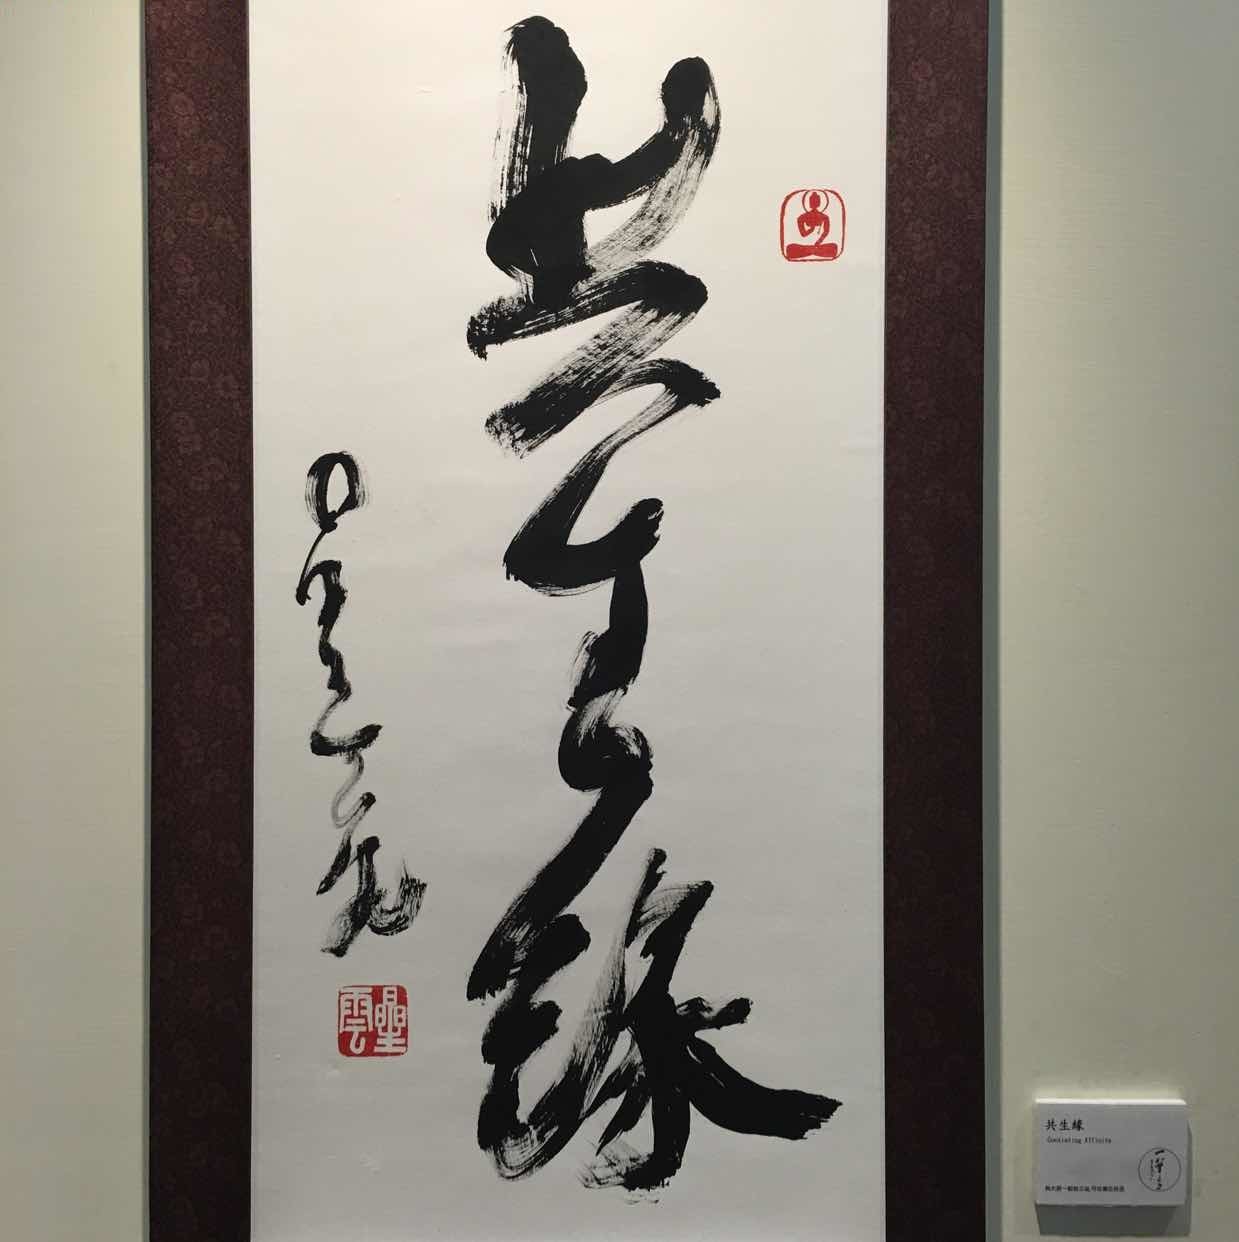 共生緣
星雲
星雲
共生緣
Coexisting Affinity
一筆字